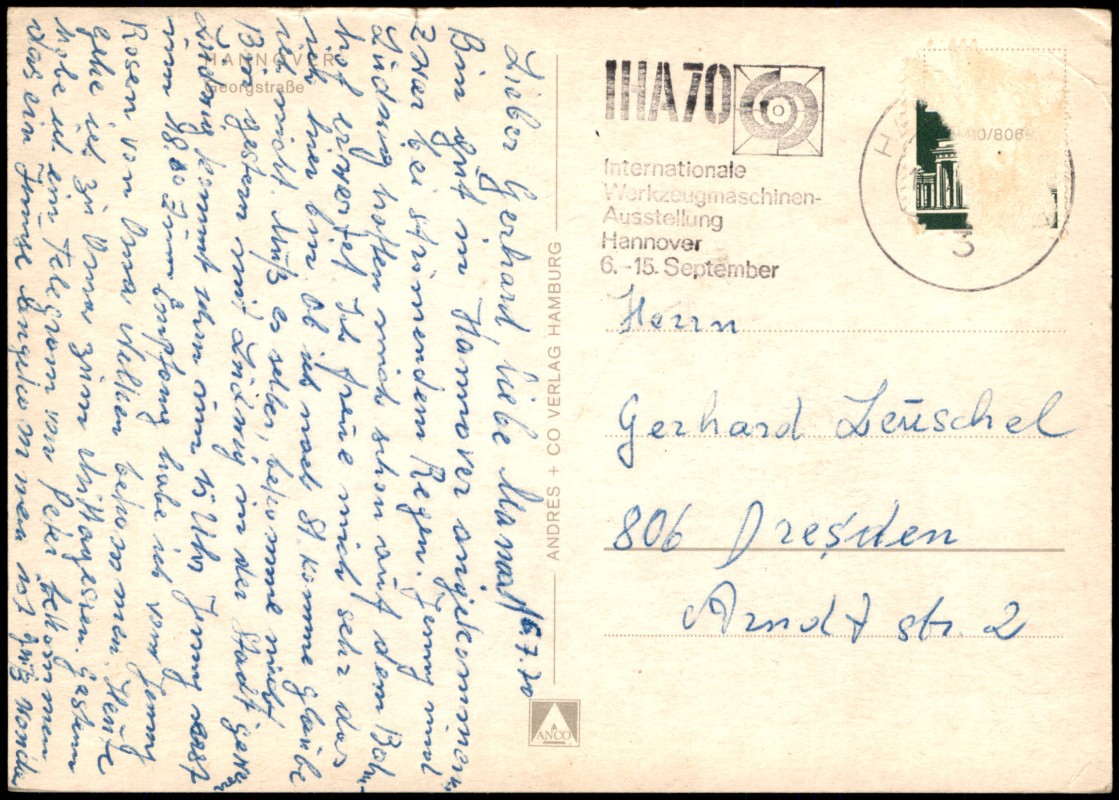 HANNOVER
Georgstraße
Lieber Gerhard, liebe Mama! 16.7.70
Bin gut in Hannover angekommen,
zwar bei strömendem Regen. Jenny und
Ludwig hatten mich schon auf dem Bahn-
hof erwartet. Ich freue mich sehr das
ich hier bin. Ob ich nach St. komme glaube
ich nicht. Muß es selber, bekomme nicht
Bin gestern mit Ludwig in der Stadt gewe-
Ludwig kommt schon um 15 Uhr, Jenny erst
um 18.00. Zum Empfang habe ich von Jenny
Rosen von Oma Nelken bekommen. Heute
gehe ich zu Oma zum Mittagessen. Gestern
habe ich ein Telegram von Peter bekommen
das ein Junge angekommen ist. Gruß Monika
ANDRES + CO VERLAG HAMBURG
ANCO
IHA70
Internationale
Werkzeugmaschinen-
Ausstellung
Hannover
6.-15. September
H
3
Herrn
Gerhard Leuschel
806 Dresden
Arndtstr. 2